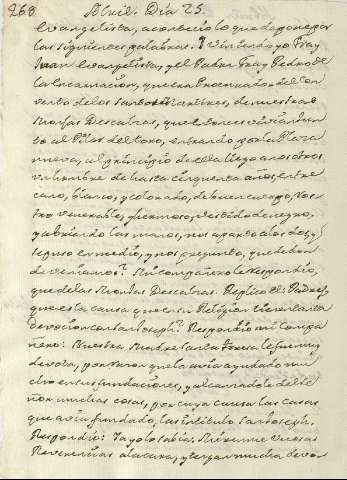 268 Abril. Dia 25.
Evangelista, acontecio lo que depone por
las siguientes palabras. Viniendo yo Fray
Juan Evangelista, y el Padre Fray Pedro de
la Encarnacion, que era Procurador del Con
vento de los Santos Martires, de nuestras
Monjas Descalzas, que entonces vivian jun
to al Pilar del toro, entrando por la Plaza
nueva, al principio de ella llego a nosotros
un hombre de hasta cinquenta años, entre
cano, blanco, y colorado, de buen cuerpo, Ros
tro venerable, y hermoso, vestido de negro,
y abriendo las manos, nos aparto a los dos, y
se puso en medio, y nos pregunto, que de don
de veniamos? Mi compañero le Respondio,
que de las Monjas Descalzas. Replico el: Padres,
que es la causa que en su Religion tienen tanta
devocion con San Joseph? Respondio mi compa
ñero: Nuestra Madre Santa Teresa le fue muy
devota, por haver que lo avia ayudado mu
cho en sus fundaciones, y alcanzadole del Se
ñor muchas cosas, por cuya causa las casas
que avia fundado, las intitulo San Joseph.
Respondio: Ya yo lo sabia. Mirenme Vuesas
Reverencias a la cara, y tengan mucha devo